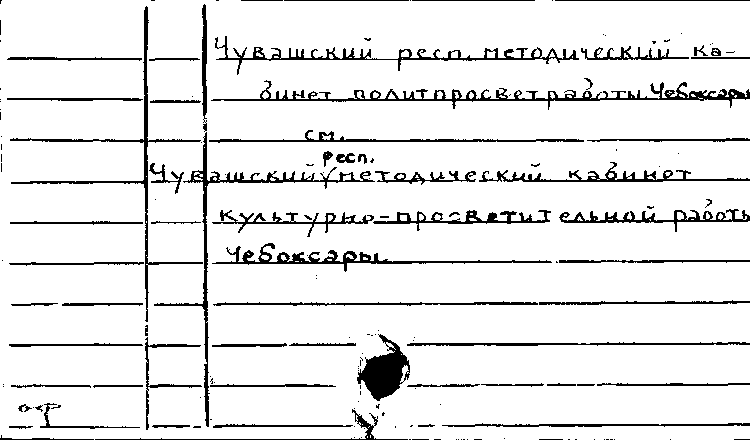 Чувашский респ. методический ка-
бинет политпросветработы. Чебоксары
см.
респ.
Чувашский методический кабинет
культурно-просветительной работы
Чебоксары.
оф